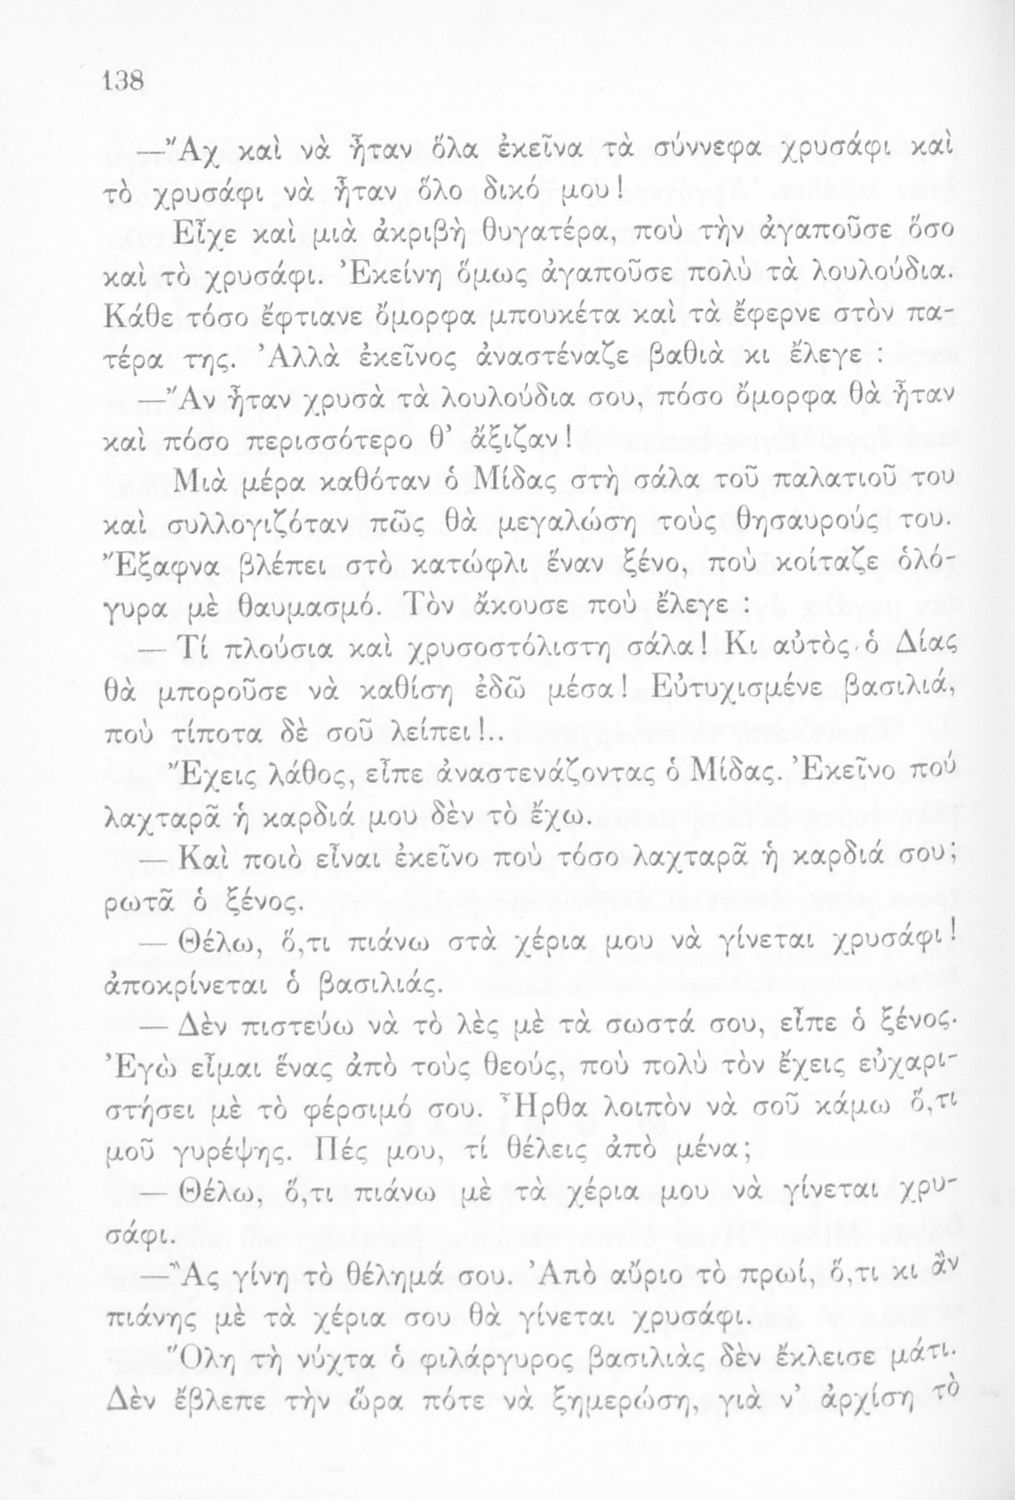 138
—Ἂχ καὶ νὰ ἦταν ὅλα ἐκεῖνα τὰ σύννεφα χρυσάφι καὶ
τὸ χρυσάφι νὰ ἦταν ὅλο δικό μου!
Εἶχε καὶ μιὰ ἀκριβὴ θυγατέρα, ποὺ τὴν ἀγαποῦσε ὅσο
καὶ τὸ χρυσάφι. Ἐκείνη ὅμως ἀγαποῦσε πολὺ τὰ λουλούδια.
Κάθε τόσο ἔφτιανε ὄμορφα μπουκέτα καὶ τὰ ἔφερνε στὸν πα-
τέρα της. Ἀλλὰ ἐκεῖνος ἀναστέναζε βαθιὰ κι ἔλεγε :
—Ἂν ἦταν χρυσὰ τὰ λουλούδια σου, πόσο ὄμορφα θὰ ἦταν
καὶ πόσο περισσότερο θ' ἄξιζαν!
Μιὰ μέρα καθόταν ὁ Μίδας στὴ σάλα τοῦ παλατιοῦ του
καὶ συλλογιζόταν πῶς θὰ μεγαλώση τοὺς θησαυρούς του.
Ἔξαφνα βλέπει στὸ κατώφλι ἕναν ξένο, ποὺ κοίταζε ὁλό-
γυρα μὲ θαυμασμό. Τὸν ἄκουσε ποὺ ἔλεγε :
— Τί πλούσια καὶ χρυσοστόλιστη σάλα! Κι αὐτὸς ὁ Δίας
θὰ μποροῦσε νὰ καθίση ἐδῶ μέσα! Εὐτυχισμένε βασιλιά,
ποὺ τίποτα δὲ σοῦ λείπει!..
Ἔχεις λάθος, εἶπε ἀναστενάζοντας ὁ Μίδας. Ἐκεῖνο ποὺ
λαχταρᾶ ἡ καρδιά μου δὲν τὸ ἔχω.
— Καὶ ποιὸ εἶναι ἐκεῖνο ποὺ τόσο λαχταρᾶ ἡ καρδιά σου;
ρωτᾶ ὁ ξένος.
— Θέλω, ὅ,τι πιάνω στὰ χέρια μου νὰ γίνεται χρυσάφι!
ἀποκρίνεται ὁ βασιλιάς.
— Δὲν πιστεύω νὰ τὸ λὲς μὲ τὰ σωστά σου, εἶπε ὁ ξένος.
Ἐγὼ εἶμαι ἕνας ἀπὸ τοὺς θεούς, ποὺ πολὺ τὸν ἔχεις εὐχαρι-
στήσει μὲ τὸ φέρσιμό σου. Ἦρθα λοιπὸν νὰ σοῦ κάμω ὅ,τι
μοῦ γυρέψης. Πές μου, τί θέλεις ἀπὸ μένα;
— Θέλω, ὅ,τι πιάνω μὲ τὰ χέρια μου νὰ γίνεται χρυ-
σάφι.
—Ἂς γίνη τὸ θέλημά σου. Ἀπὸ αὔριο τὸ πρωί, ὅ,τι κι ἂν
πιάνης μὲ τὰ χέρια σου θὰ γίνεται χρυσάφι.
Ὅλη τὴ νύχτα ὁ φιλάργυρος βασιλιὰς δὲν ἔκλεισε μάτι.
Δὲν ἔβλεπε τὴν ὥρα πότε νὰ ξημερώση, γιὰ ν' ἀρχίση τὸ